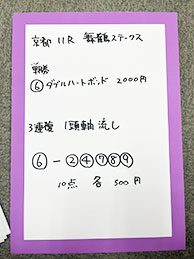 京都 11R 舞鶴ステークス
単勝
⑥ダブルハートボンド 2000円
3連複 1頭軸流し
⑥-②④⑦⑧⑨
10点 各 500円